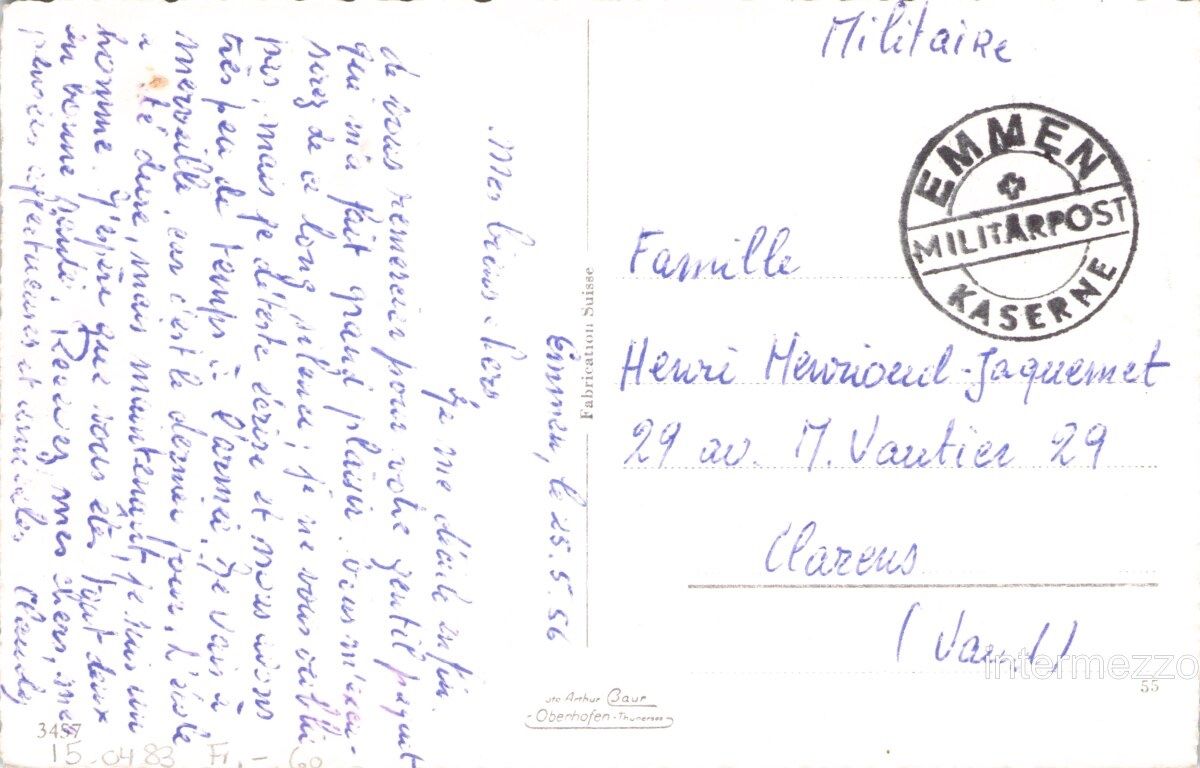 Militaire
EMMEN
MILITÄRPOST
KASERNE
Famille
Henri Henrioud-Jaquemet
29 av. M. Vautier 29
Clarens
(Vaud)
Emmen, le 25.5.56
Mes biens chers
Je me dois enfin
de vous remercier pour votre gentil paquet
qui m'a fait grand plaisir. Vous m'excu-
serez de ce long silence; je ne vous oublie
pas, mais je déteste écrire et nous avons
très peu de temps à l'armée. Je vais à
merveille, car c'est le dernier jour. L'école
a été dure, mais maintenant, je suis un
homme. J'espère que vous êtes tous deux
en bonne santé. Recevez, mes chers, mes
pensées affectueuses et amicales Claudy
Fabrication Suisse
Arthur Baur
Oberhofen-Thunersee
3487
55
15.04.83 Fr. -.60
intermezzo